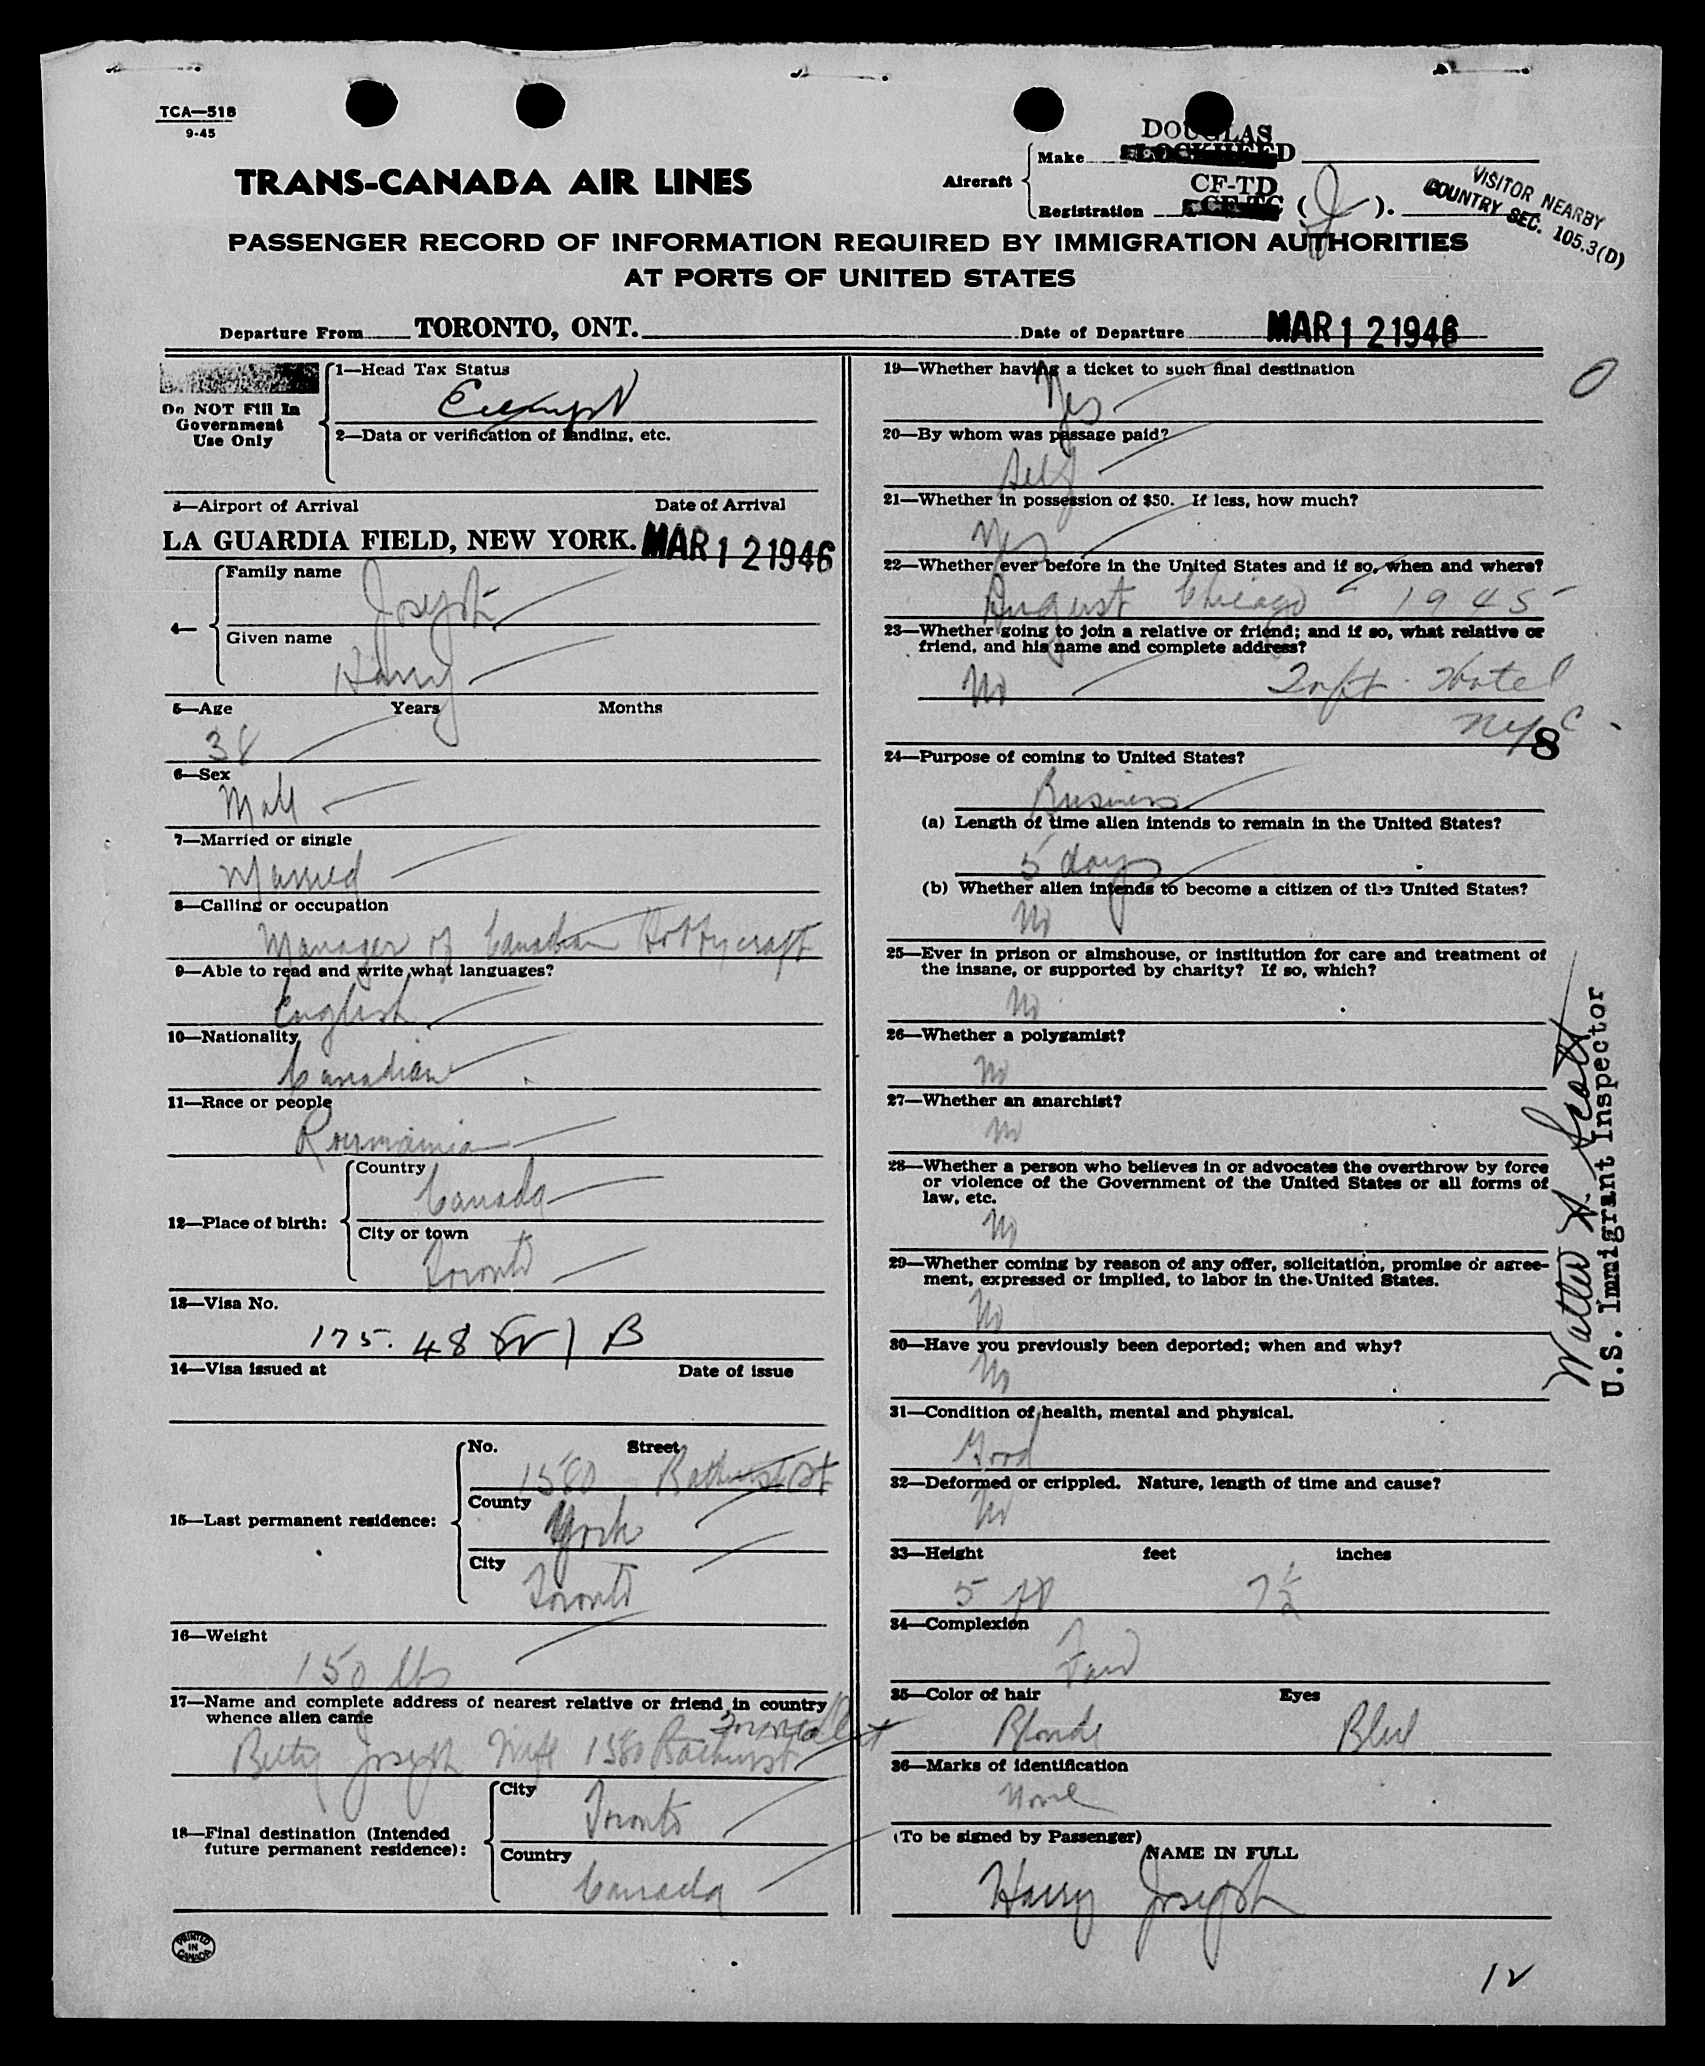 TCA—518
9-45
TRANS-CANADA AIR LINES
Aircraft
Make
DOUGLAS
LOCKHEED
Registration
CF-TD
CF-TC ( J ).
VISITOR NEARBY
COUNTRY SEC. 105.3(D)
PASSENGER RECORD OF INFORMATION REQUIRED BY IMMIGRATION AUTHORITIES
AT PORTS OF UNITED STATES
Departure From TORONTO, ONT. Date of Departure MAR 12 1946
Do NOT Fill In
Government
Use Only
1—Head Tax Status
Exempt
2—Data or verification of landing, etc.
3—Airport of Arrival Date of Arrival
LA GUARDIA FIELD, NEW YORK. MAR 12 1946
4—
Family name
Joseph
Given name
Harry
5—Age Years Months
38
6—Sex
Male
7—Married or single
Married
8—Calling or occupation
Manager of Canadian Hobbycraft
9—Able to read and write what languages?
English
10—Nationality
Canadian
11—Race or people
Roumania
12—Place of birth:
Country
Canada
City or town
Toronto
13—Visa No.
175. 48 B
14—Visa issued at Date of issue
15—Last permanent residence:
No. Street
1580 Bathurst St
County
York
City
Toronto
16—Weight
150 lbs
17—Name and complete address of nearest relative or friend in country
whence alien came
Toronto Ont
Betty Joseph Wife 1580 Bathurst
18—Final destination (Intended
future permanent residence):
City
Toronto
Country
Canada
PRINTED
IN
CANADA
19—Whether having a ticket to such final destination
Yes
0
20—By whom was passage paid?
Self
21—Whether in possession of $50. If less, how much?
Yes
22—Whether ever before in the United States and if so, when and where?
August Chicago - 1945
23—Whether going to join a relative or friend; and if so, what relative or
friend, and his name and complete address?
No Taft Hotel
NYC
8
24—Purpose of coming to United States?
Business
(a) Length of time alien intends to remain in the United States?
5 days
(b) Whether alien intends to become a citizen of the United States?
No
25—Ever in prison or almshouse, or institution for care and treatment of
the insane, or supported by charity? If so, which?
No
26—Whether a polygamist?
No
27—Whether an anarchist?
No
28—Whether a person who believes in or advocates the overthrow by force
or violence of the Government of the United States or all forms of
law, etc.
No
29—Whether coming by reason of any offer, solicitation, promise or agree-
ment, expressed or implied, to labor in the United States.
No
30—Have you previously been deported; when and why?
No
31—Condition of health, mental and physical.
Good
32—Deformed or crippled. Nature, length of time and cause?
No
33—Height feet inches
5 ft 7 1/2
34—Complexion
Fair
35—Color of hair Eyes
Blonde Blue
36—Marks of identification
None
(To be signed by Passenger)
NAME IN FULL
Harry Joseph
Walter H. Scott
U.S. Immigrant Inspector